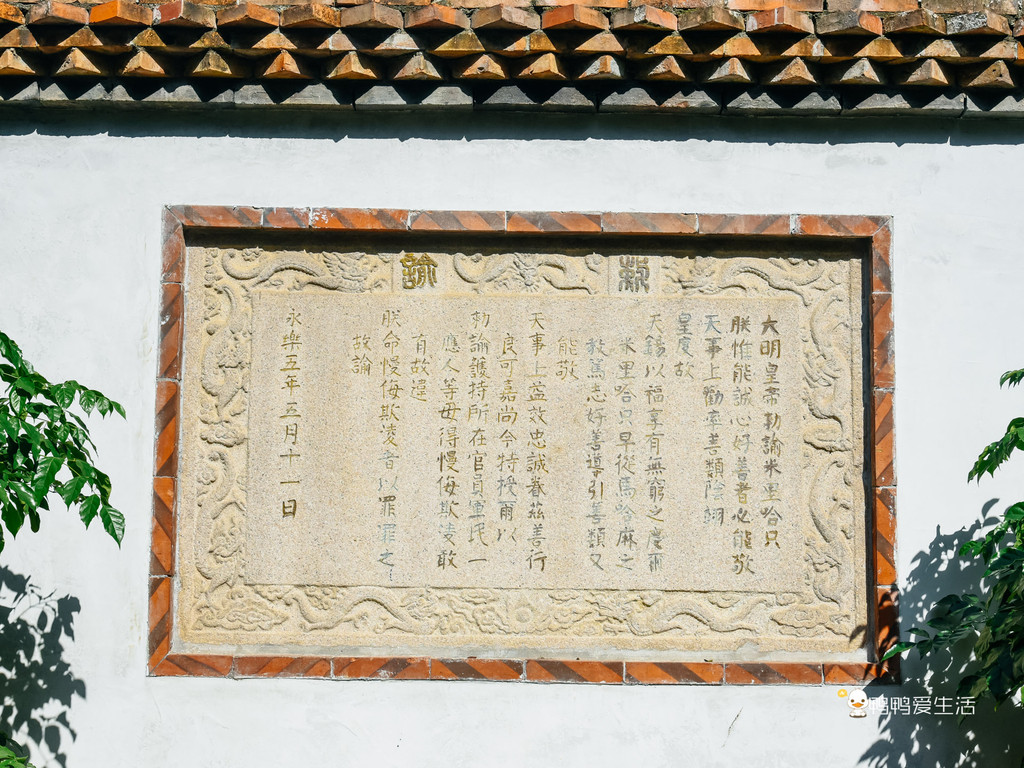 敕諭
大明皇帝勅諭米里哈只
朕惟能誠心好善者必能敬
天事上勸率善類陰翊
皇度故
天錫以福享有無窮之慶爾
米里哈只早從馬哈麻之
教篤志好善導引善類又
能敬
天事上益效忠誠眷茲善行
良可嘉尚今特授爾以
勅諭護持所在官員軍民一
應人等毋得慢侮欺凌敢
有故違
朕命慢侮欺凌者以罪罪之
故諭
永樂五年五月十一日
鴨鴨爱生活